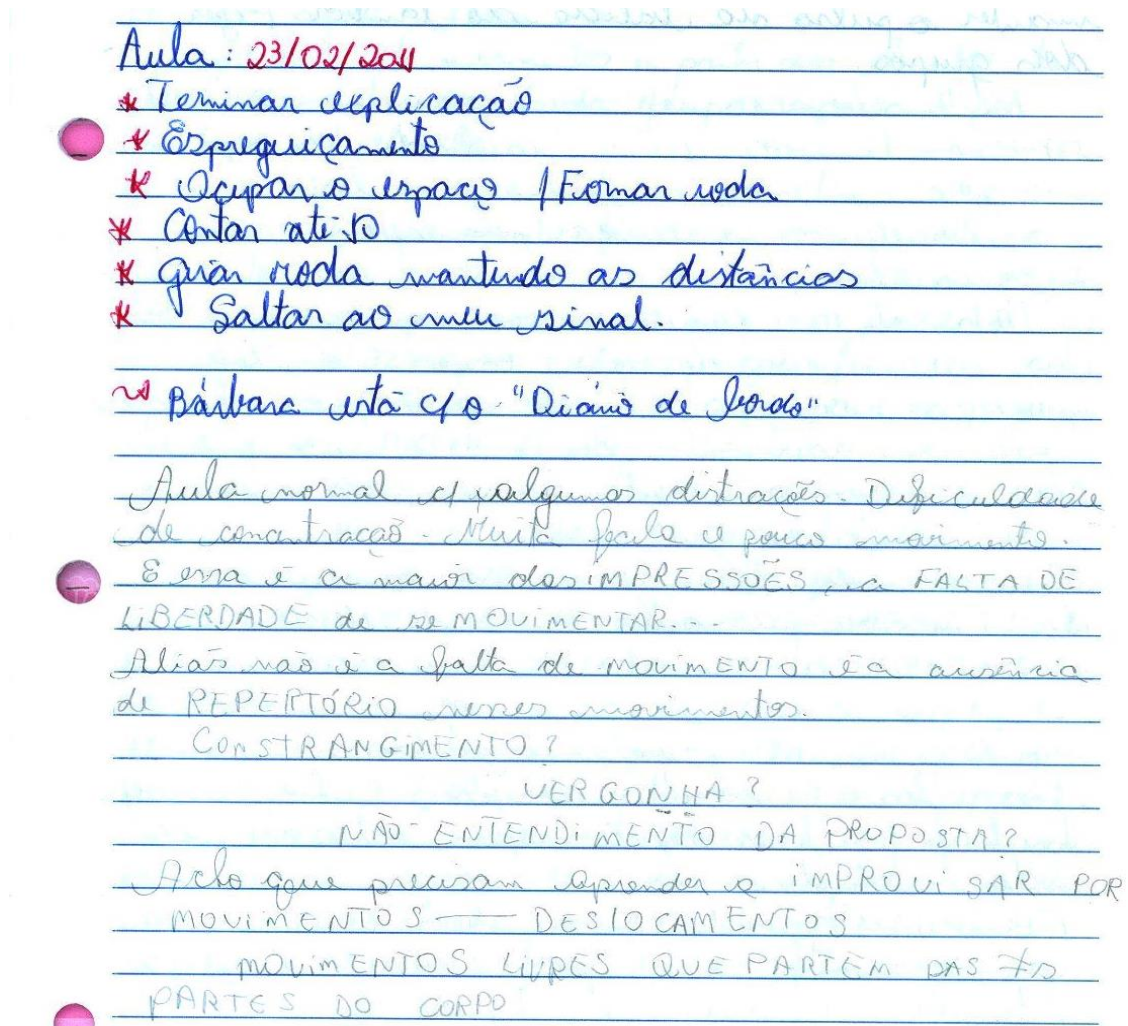 Aula: 23/02/2011
* Terminar explicação
* Espreguiçamento
* Ocupar o espaço / Formar roda
* Contar até 10
* Guiar roda mantendo as distâncias
* Saltar ao meu sinal.
Bárbara está c/ o "Diário de bordo"
Aula normal c/ algumas distrações. Dificuldade
de concentração. Muita fala e pouco movimento.
E essa é a maior das IMPRESSÕES, a FALTA DE
LIBERDADE de se MOVIMENTAR...
Aliás não é a falta de MOVIMENTO é a ausência
de REPERTÓRIO nesses movimentos.
CONSTRANGIMENTO?
VERGONHA?
NÃO-ENTENDIMENTO DA PROPOSTA?
Acho que precisam aprender a IMPROVISAR POR
MOVIMENTOS — DESLOCAMENTOS
MOVIMENTOS LIVRES QUE PARTEM DAS ≠s
PARTES DO CORPO